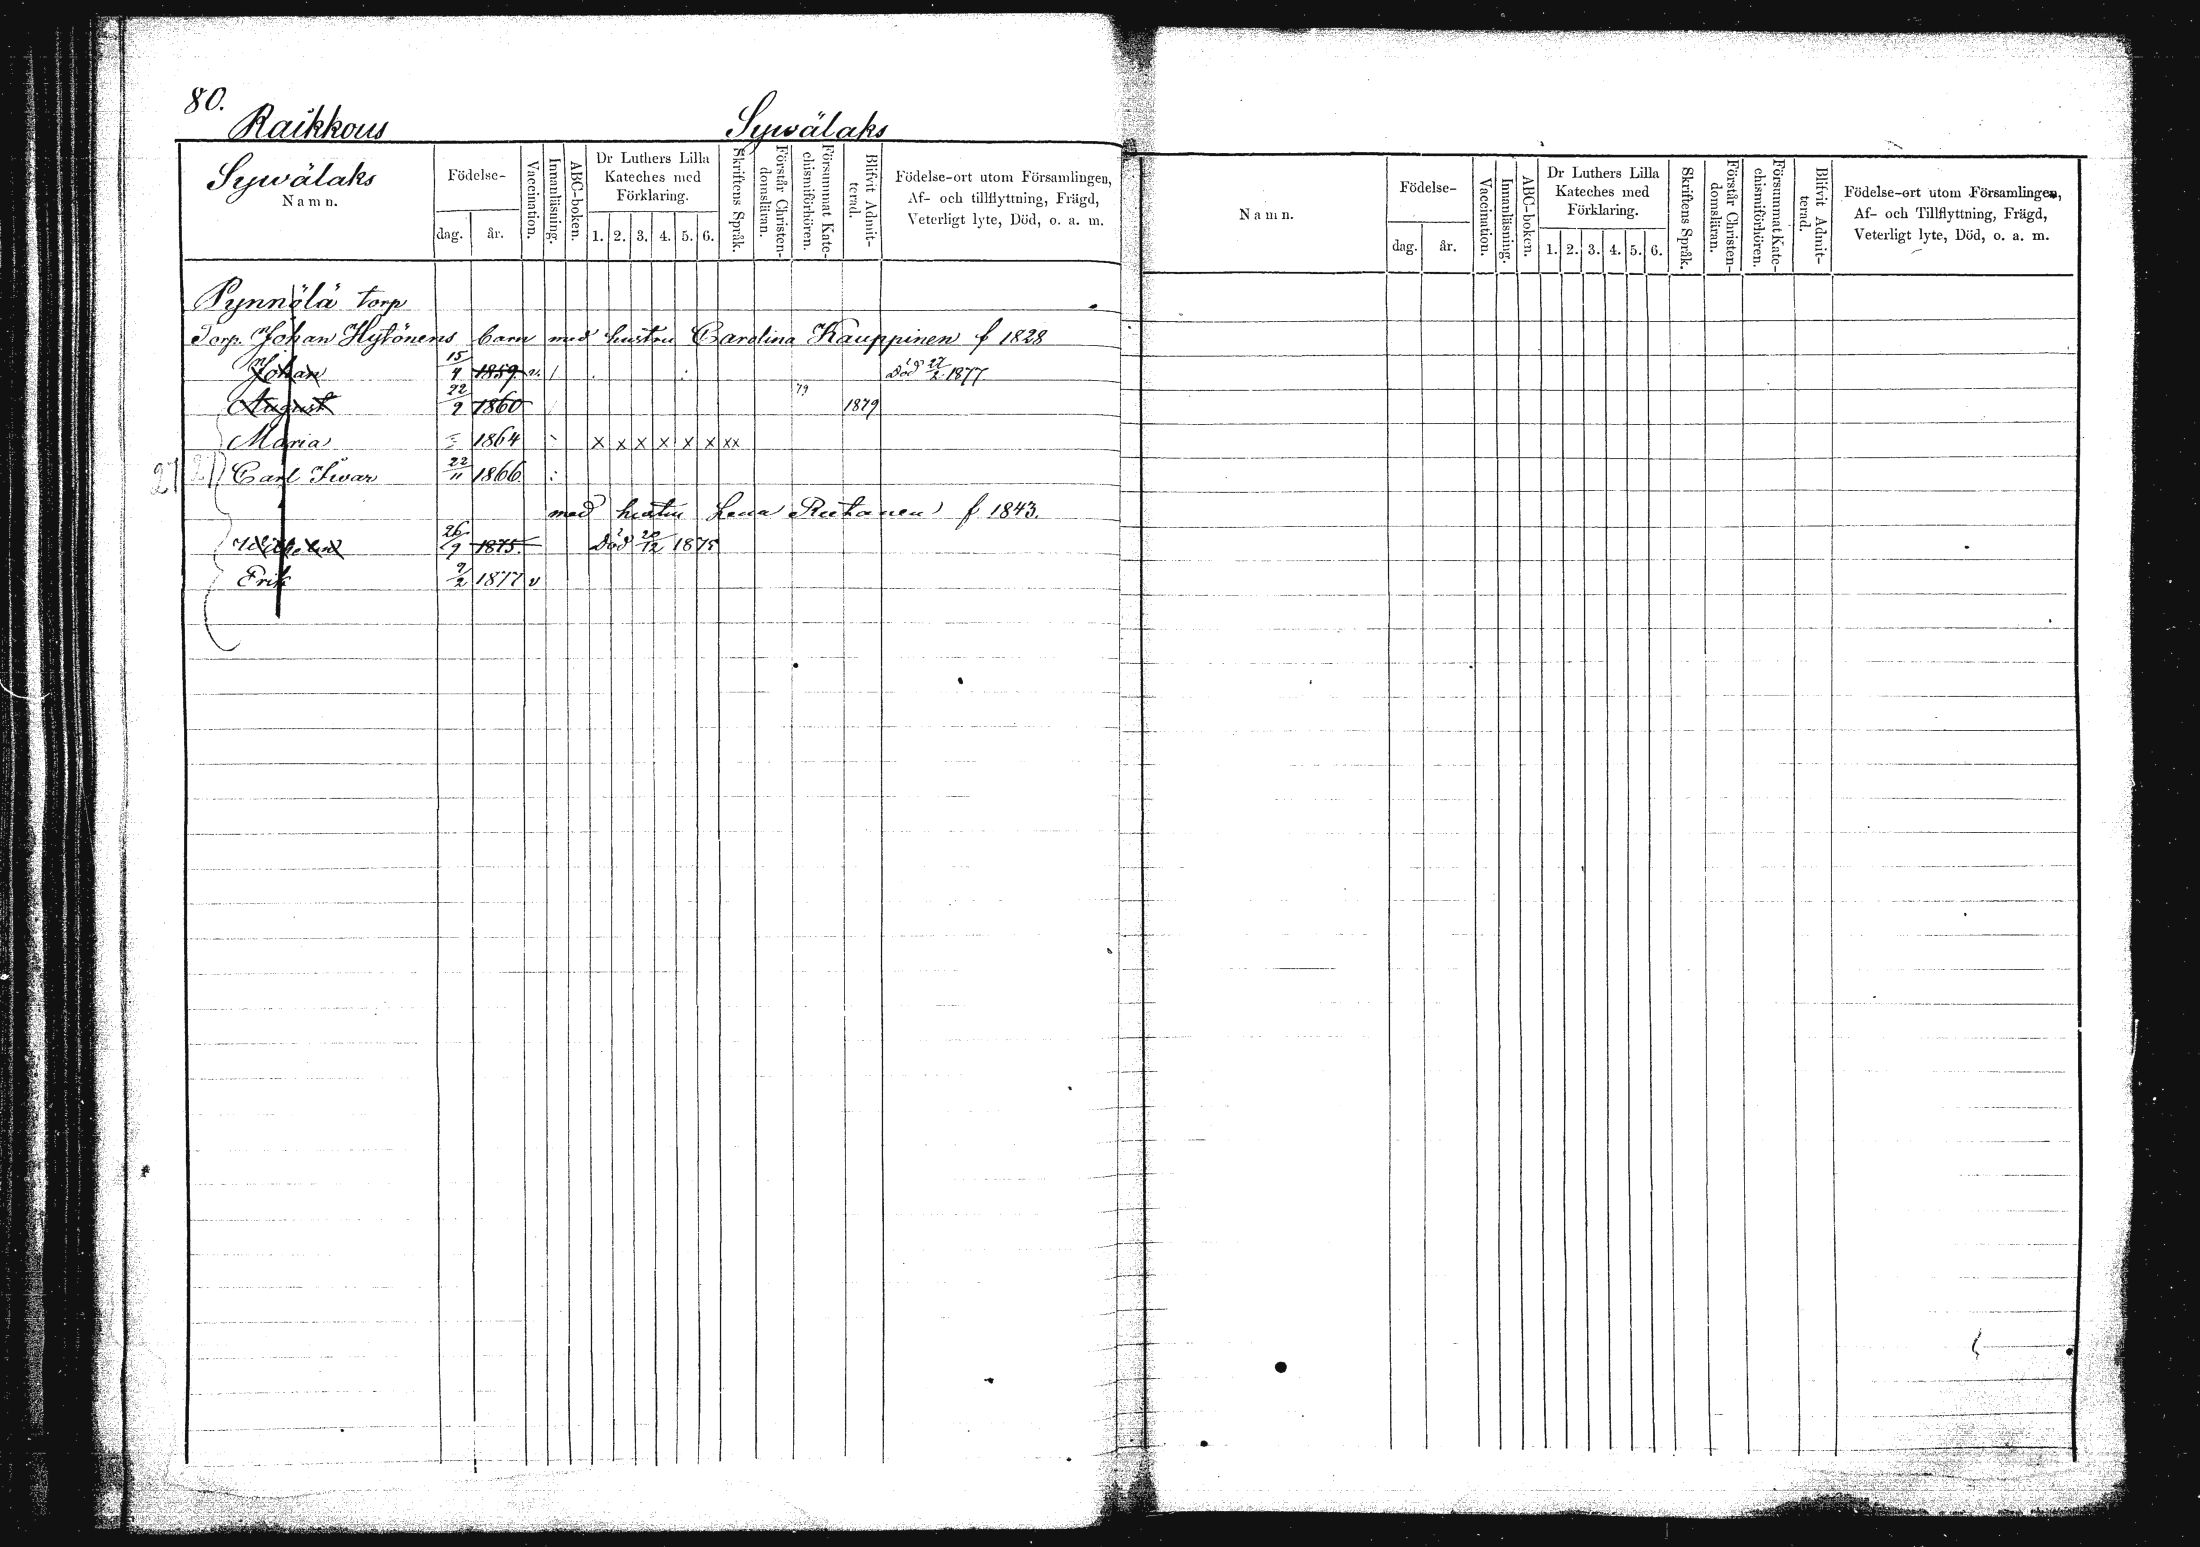 80.
Raikkous Sywälaks
Sywälaks
Namn.
Födelse-
dag. år.
Vaccination.
Innanläsning.
ABC-boken.
Dr Luthers Lilla
Kateches med
Förklaring.
1. 2. 3. 4. 5. 6.
Skriftens Språk.
Förstår Christen-
domsläran.
Försummat Kate-
chismiförhören.
Blifvit Admit-
terad.
Födelse-ort utom Församlingen,
Af- och tillflyttning, Frägd,
Veterligt lyte, Död, o. a. m.
Pynnölä torp
Torp. Johan Hytönens barn med hustru Carolina Kauppinen f 1828
Johan 15/4 1859 v. / Död 27/2 1877.
August 22/9 1860 79 1879
Maria 1864 x x x x x x xx
27 27 Carl Iwar 22/11 1866
med hustru Lena Ruthanen f 1843.
Wilhelm 26/9 1875. Död 20/12 1875
Erik 9/2 1877 v
Namn.
Födelse-
dag. år.
Vaccination.
Innanläsning.
ABC-boken.
Dr Luthers Lilla
Kateches med
Förklaring.
1. 2. 3. 4. 5. 6.
Skriftens Språk.
Förstår Christen-
domsläran.
Försummat Kate-
chismiförhören.
Blifvit Admit-
terad.
Födelse-ort utom Församlingen,
Af- och Tillflyttning, Frägd,
Veterligt lyte, Död, o. a. m.